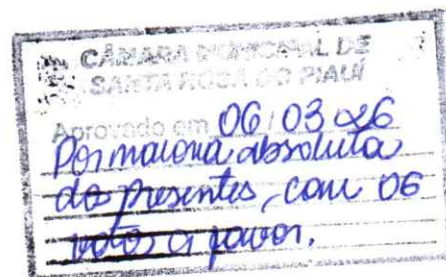 CÂMARA MUNICIPAL DE
SANTA ROSA DO PIAUÍ
Aprovado em 06/03/26
Por maioria absoluta
dos presentes, com 06
votos a favor.